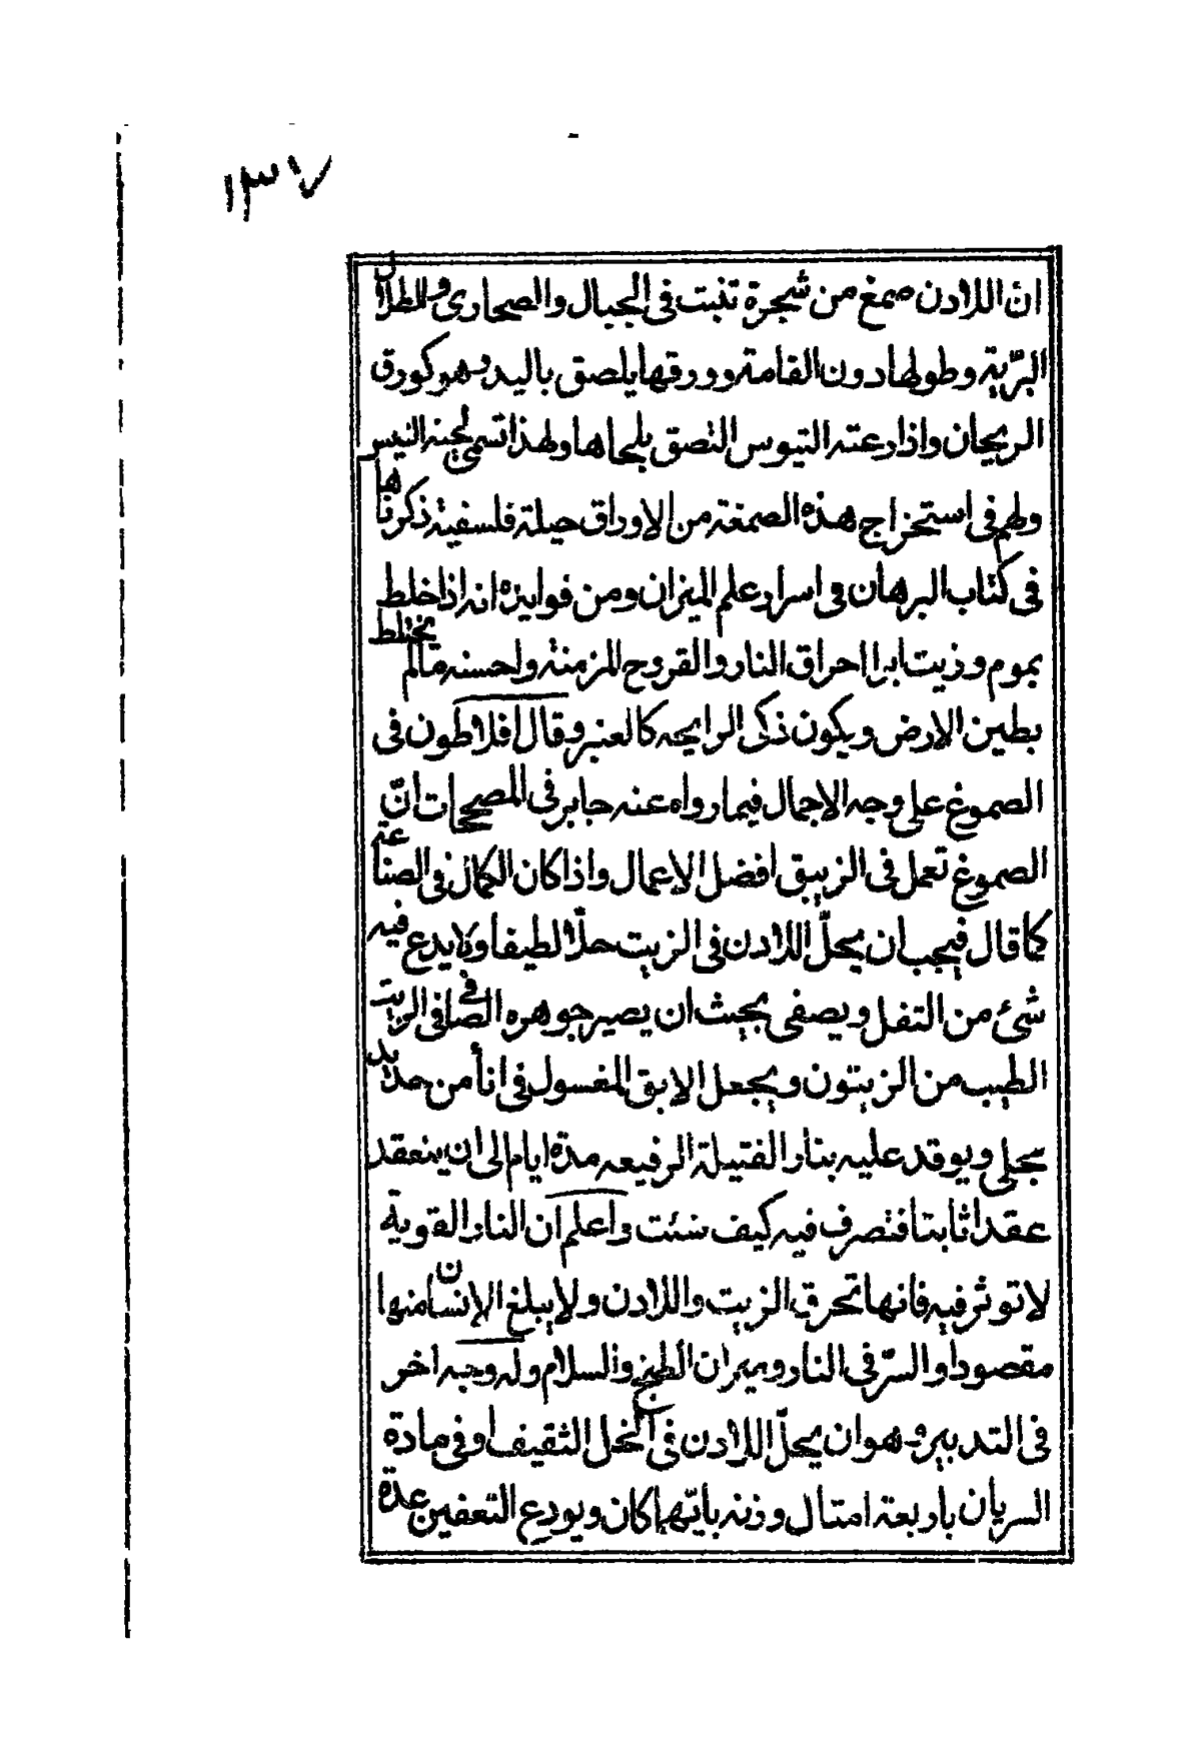 ١٣٧
ان اللادن صمغ من شجرة تنبت فى الجبال والصحارى والطلال
البرّية وطولها دون القامة وورقها يلصق باليد وهو كورق
الريحان واذا رعته التيوس التصق بلحاها ولهذا تسمى لحية التيس
ولهم فى استخراج هذه الصمغة من الاوراق حيلة فلسفية ذكرناها
فى كتاب البرهان فى اسرار علم الميزان ومن فوايزه انه اذا خلط
بموم وزيت ابرا احراق النار والقروح المزمنة واحسنه مالم يختلط
بطين الارض ويكون ذكى الرايحه كالعنبر وقال افلاطون فى
الصموغ على وجه الاجمال فيما رواه عنه جابر فى المصححات انّ
الصموغ تعمل فى الزيبق افضل الاعمال واذا كان الكمال فى الصناعة
كما قال فيجب ان يحلّ اللادن فى الزيت حلّا لطيفا ولا يدع فيه
شئ من التفل ويصفى بحيث ان يصير جوهره الصافى فى الزيت
الطيب من الزيتون ويجعل الابق المغسول فى انأ من حديد
مجلى ويوقد عليه بنار الفتيلة الرفيعه مدة ايام الى ان ينعقد
عقدا ثابتا فتصرف فيه كيف شئت واعلم ان النار القوية
لا توثر فيه فانها تحرق الزيت واللادن ولا يبلغ الانسان منها
مقصودا والسرّ فى النار وميزان الطبخ والسلام وله وجه اخر
فى التدبير وهو ان يحلّ اللادن فى الخل الثقيف او فى مادة
السريان باربعة امتال وزنه بايّهما كان ويودع التعفين عدة